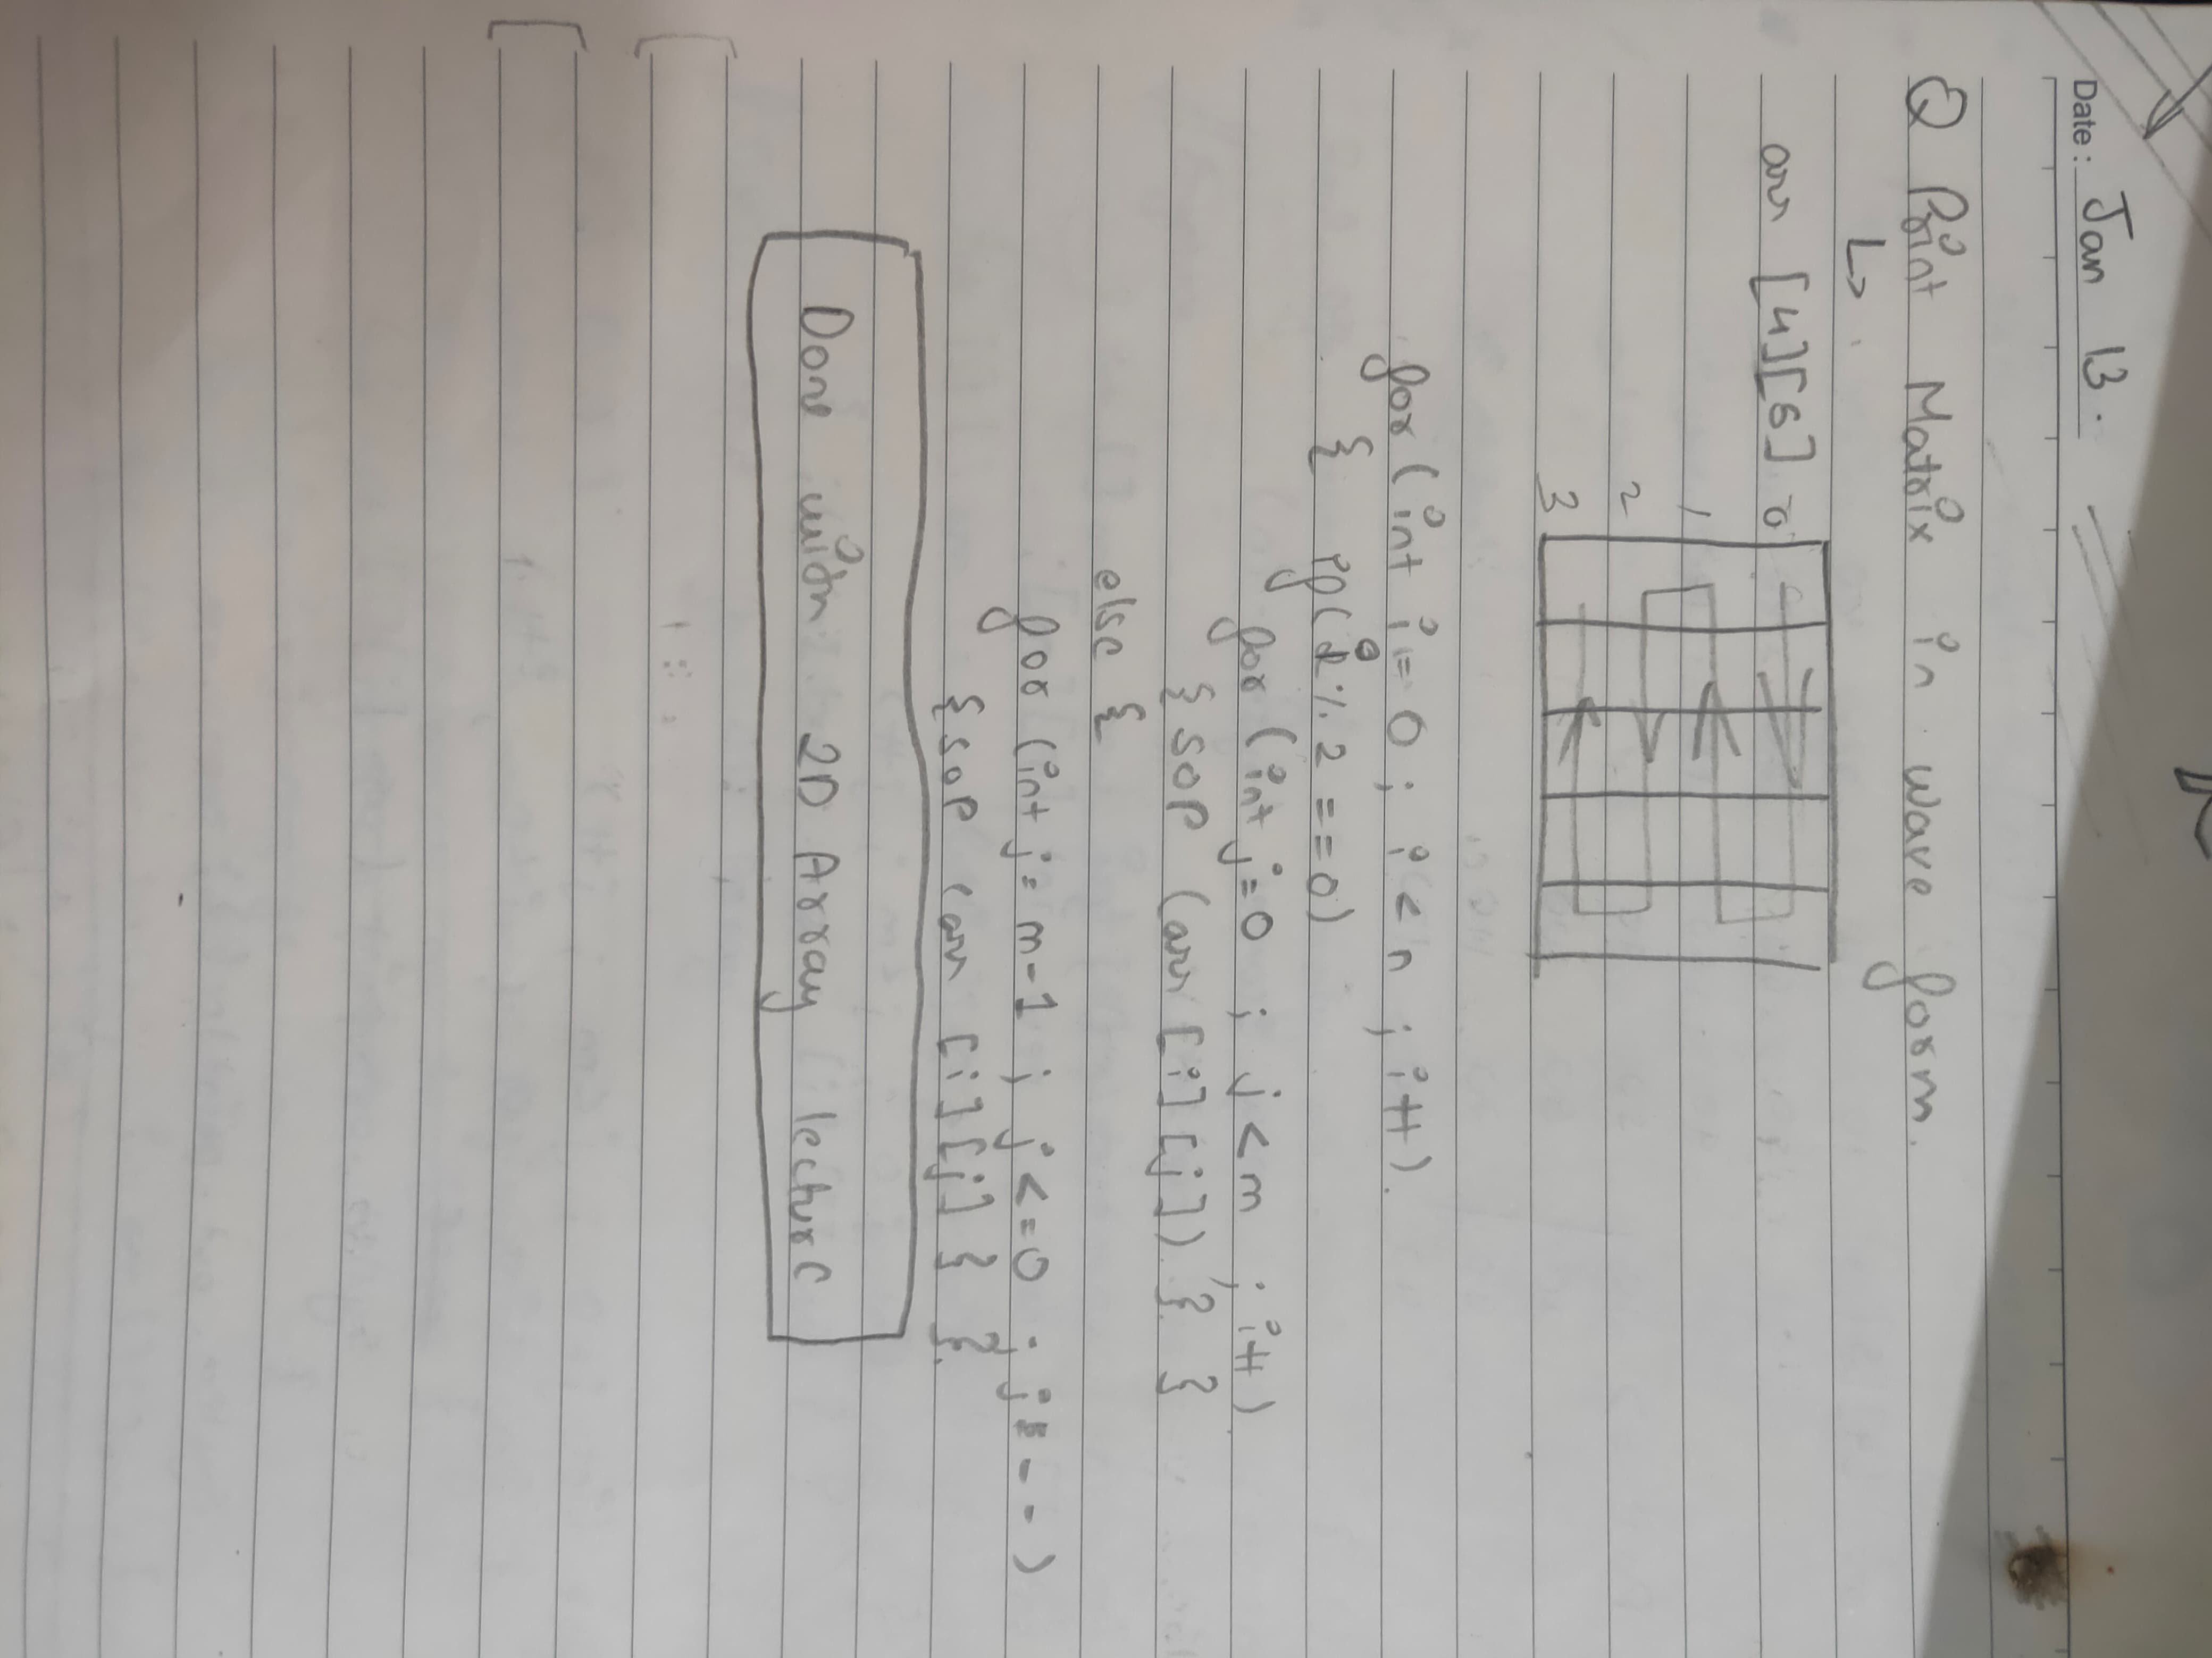 Date: Jan 13.
Q Print Matrix in wave form.
↳
arr [4][6] 0
1
2
3
for (int i=0 ; i<n ; i++).
{ if(i%2==0)
for (int j=0 ; j<m ; i++)
{ SOP (arr [i][j]) } }
else {
for (int j=m-1 ; j<=0 ; j=--)
{ SOP (arr [i][j] } }
Done with 2D Array lecture